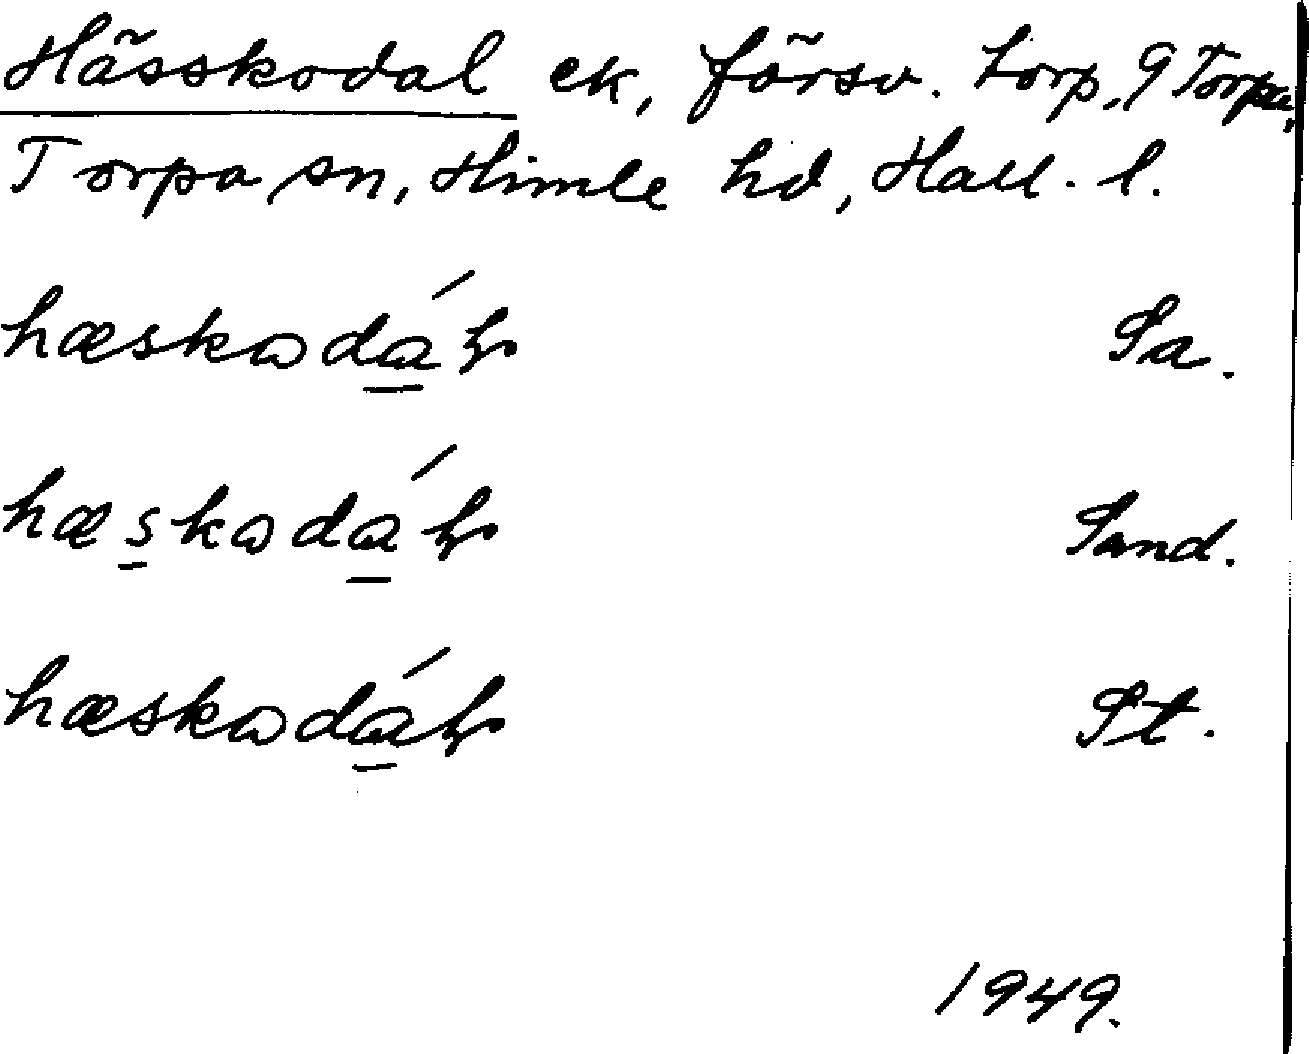 Hässkodal ek, försv. torp, 9 Torpa,
Torpa sn, Himle hd, Hall. l.
hæskadá Sa.
hæskadá Sand.
hæskadá St.
1949.